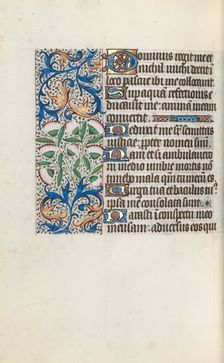 Dominus regit me et
nichil michi deerit
loco pascue ibi me collocavit
Sup aquā refectionis e
ducavit me animam meam
convertit
Deduxit me sup semitas
iusticie propter nomen suū
Nam et si ambulavero
in medio umbre mortis nō
timebo mala qm tu mecū es
Virga tua et baculus tu
ipsa me consolata sunt
Parasti in conspectu meo
mensam adversus eos qui